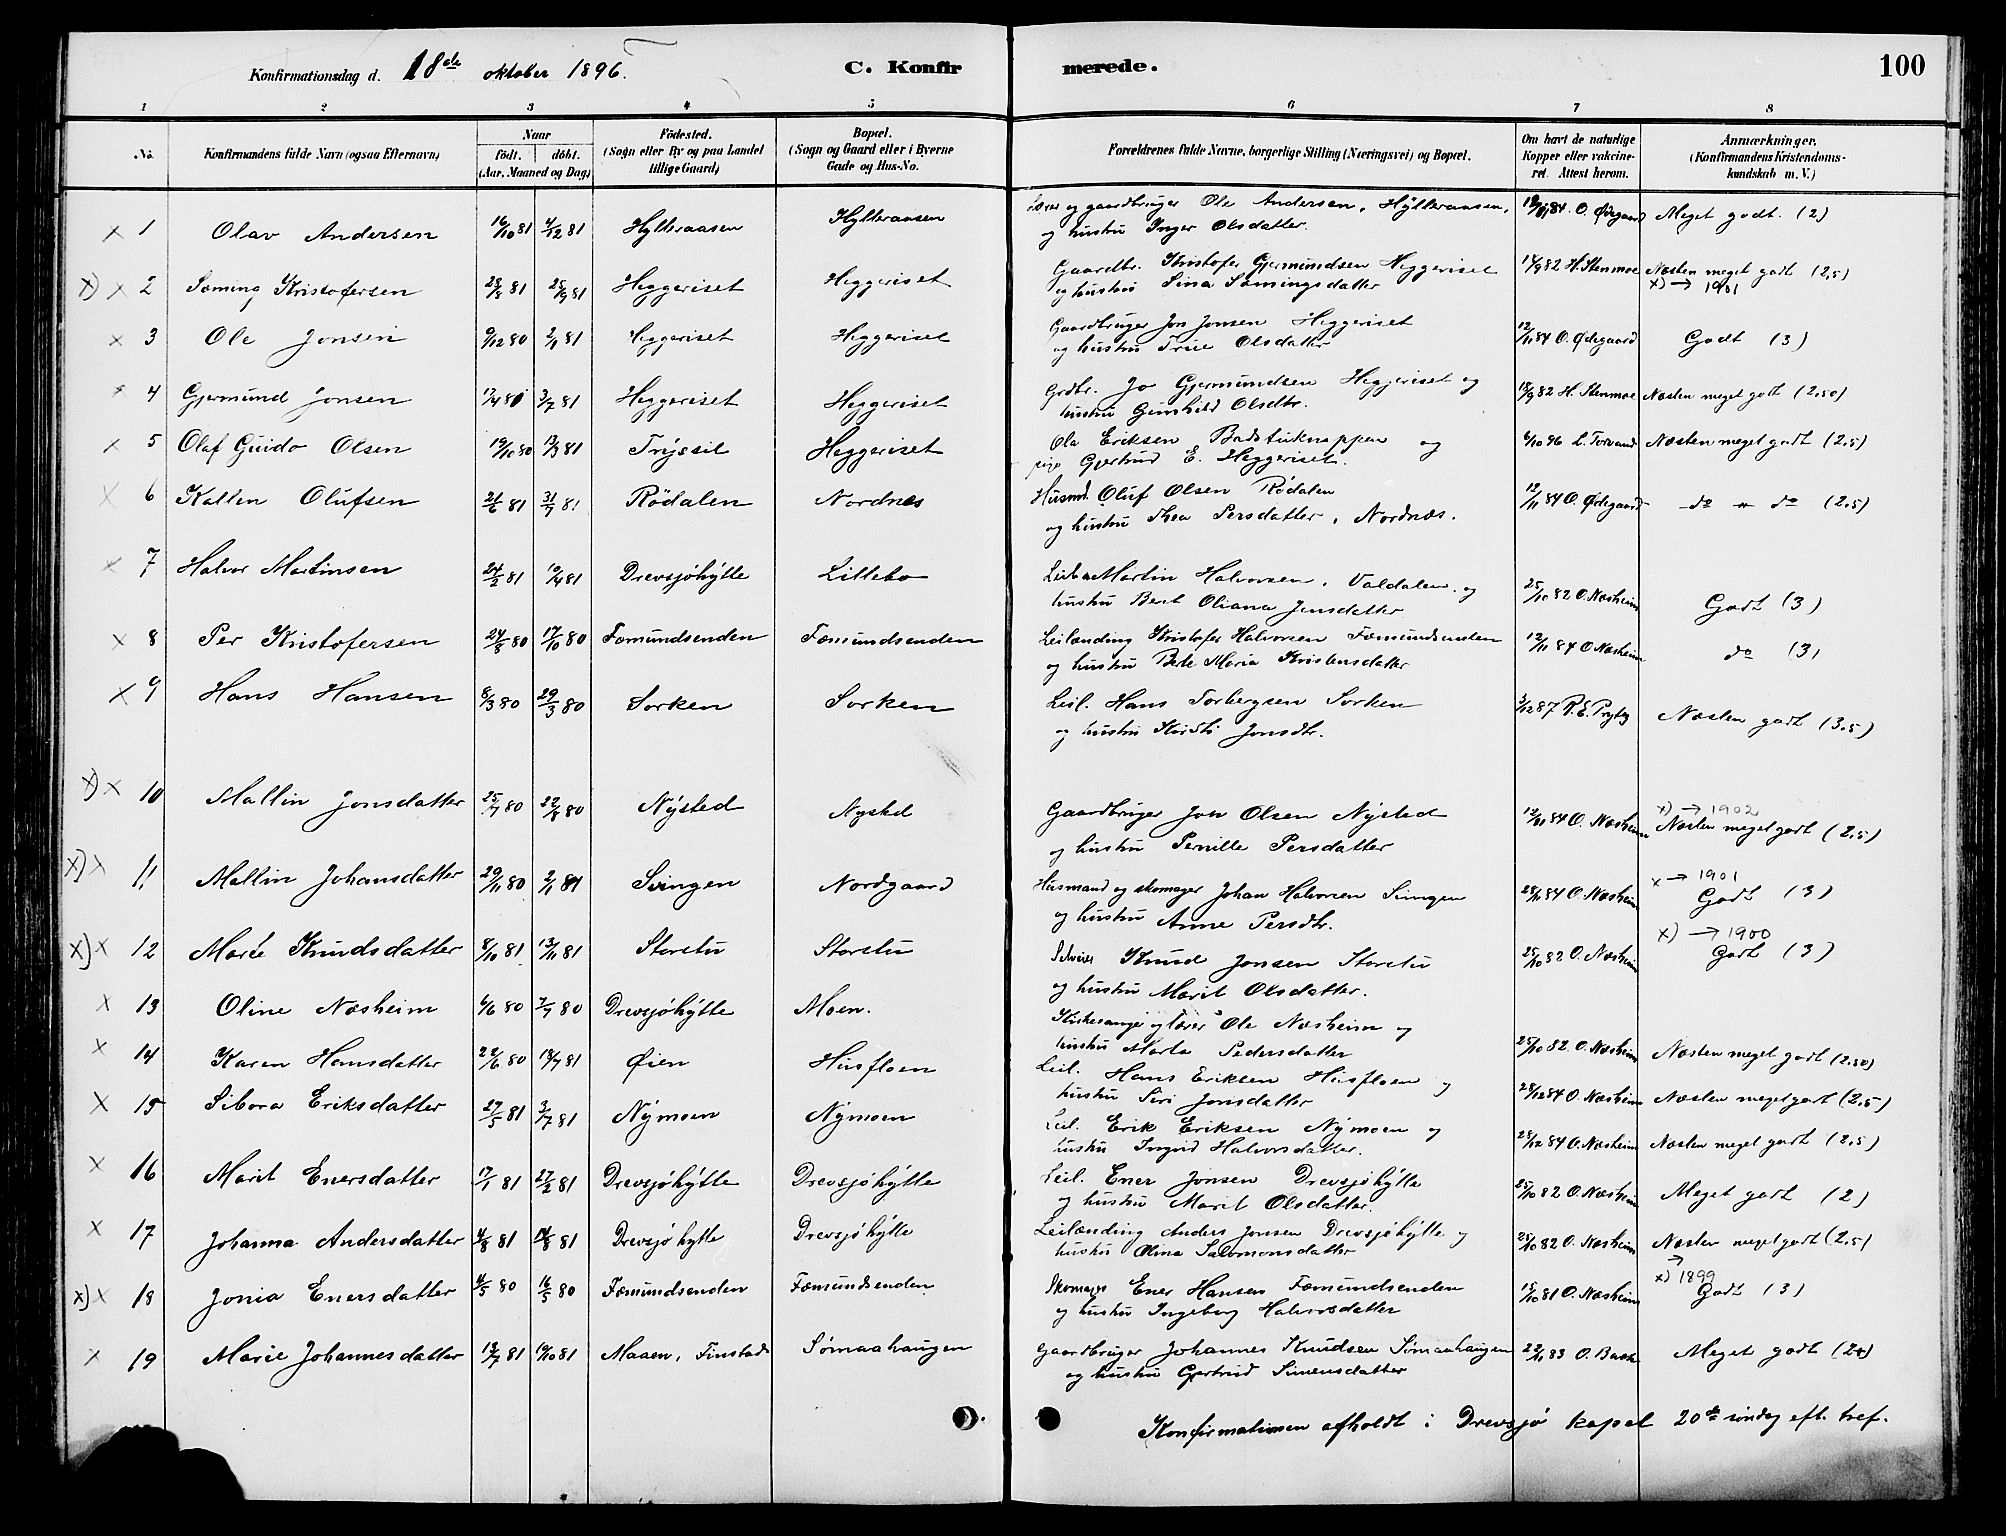 Konfirmationsdag d. 18de oktober 1896. C. Konfirmerede. 100
1 2 3 4 5 6 7 8
No. Konfirmandens fulde Navn (ogsaa Efternavn) Naar født. døbt. (Aar, Maaned og Dag) Fødested. (Sogn eller By og paa Landet tillige Gaard) Bopæl. (Sogn og Gaard eller i Byerne Gade og Hus-No. Forældrenes fulde Navne, borgerlige Stilling (Næringsvei) og Bopæl. Om havt de naturlige Kopper eller vakcineret. Attest herom. Anmærkninger. (Konfirmandens Kristendomskundskab m. V.)
x 1 Olav Andersen 16/10 81 4/12 81 Hylleraasen Hylleraasen Lærer og gaardbruger Ole Andersen, Hylleraasen, og hustru Inger Olsdatter. 84 O. Ødegaard Meget godt. (2)
x) x 2 Sæming Kristofersen 81 25/9 81 Heggeriset Heggeriset Gaardbr. Kristofer Gjermundsen Heggeriset og hustru Sina Sæmingsdatter 82 H. Stenmoe Næsten meget godt (2,5)
x) → 1901
x 3 Ole Jonsen 9/12 80 2/1 81 Heggeriset Heggeriset Gaardbruger Jon Jonsen Heggeriset og hustru Trine Olsdatter 12/11 84 O. Ødegaard Godt (3)
x 4 Gjermund Jonsen 3/7 81 Heggeriset Heggeriset Grdbr. Jo Gjermundsen Heggeriset og hustru Gunhild Olsdtr. 18/9 82 H. Stenmoe Næsten meget godt (2,50)
x 5 Olaf Guido Olsen 19/10 80 13/3 81 Trysil Heggeriset Ole Eriksen Badstuknappen og pige Gjertrud E. Heggeriset. 6/10 96 L. Torvund Næsten meget godt (2,5)
x 6 Kallen Olufsen 21/6 81 31/7 81 Rödalen Nordnes Husmd. Oluf Olsen Rödalen og hustru Thea Persdatter, Nordnæs. 12/11 84 O. Ødegaard do " do (2,5)
x 7 Halvor Martinsen 24/2 81 10/4 81 Drevsjöhytte Lillebo Martin Halvorsen, Valdalen, og hustru Berit Oliana Jensdatter 25/10 82 O. Næsheim Godt (3)
x 8 Per Kristofersen 24/8 80 17/10 80 Fæmundsenden Fæmundsenden Leilænding Kristofer Halvorsen Fæmundsenden og hustru Berte Maria Kristensdatter 12/11 84 O Næsheim do (3)
x 9 Hans Hansen 8/3 80 29/3 80 Sorken Sorken Leil. Hans Torbergsen Sorken og hustru Kirsti Jonsdtr. 3/12 87 P. E. Pryhy Næsten godt (3,5)
x) x 10 Mallin Jonsdatter 25/7 80 22/8 80 Nysted Nysted Gaardbruger Jon Olsen Nysted og hustru Pernille Persdatter 12/11 84 O. Næsheim x) → 1902
Næsten meget godt (2,5)
x) x 11 Mallin Johansdatter 29/11 80 2/1 81 Svingen Nordgaard Husmand og skomager Johan Halvorsen Svingen og hustru Anne Persdtr. 84 O. Næsheim x → 1901
Godt (3)
x) x 12 Marie Knudsdatter 8/10 81 13/11 81 Storstu Storstu Selveier Knud Jonsen Storstu og hustru Marit Olsdatter. 25/10 82 O. Næsheim x) → 1900
Godt (3)
x 13 Oline Næsheim 6/6 80 7/7 80 Drevsjöhytte Moen. Kirkesanger og lærer Ole Næsheim og hustru Marta Pedersdatter 25/10 82 O. Næsheim Næsten meget godt (2,50)
x 14 Karen Hansdatter 22/6 80 18/7 81 Øien Husfloen Leil. Hans Eriksen Husfloen og hustru Siri Jonsdatter 28/12 84 O. Næsheim Næsten meget godt (2,5)
x 15 Sibora Eriksdatter 27/5 81 3/7 81 Nymoen Nymoen Leil. Erik Eriksen Nymoen og hustru Ingrid Halvorsdatter. 28/12 84 O. Næsheim Næsten meget godt (2,5)
x 16 Marit Enersdatter 17/1 81 27/2 81 Drevsjöhytte Drevsjöhytte Leil. Ener Jonsen Drevsjöhytte og hustru Marit Olsdatter. 25/10 82 O. Næsheim Meget godt (2)
x 17 Johanna Andersdatter 4/8 81 14/8 81 Drevsjö hytte Drevsjö hytte Leilænding Anders Jonsen Drevsjöhytte og hustru Olina Salomonsdatter 25/10 82 O. Næsheim Næsten meget godt (2,5)
x) x 18 Jonia Enersdatter 4/5 80 16/5 80 Fæmundsenden Fæmundsenden Skomager Ener Hansen Fæmundsenden og hustru Ingeborg Halvorsdatter 15/10 81 O. Næsheim → x) 1899
Godt (3)
x 19 Marie Johannesdatter 81 81 Maaen, Finstad Sømaahaugen Gaardbruger Johannes Knudsen Sømaahaugen og hustru Gjertrud Simensdatter 83 O. Meget godt (2)
Konfirmationen afholdt i Drevsjø kapel 20de söndag eft. tref.